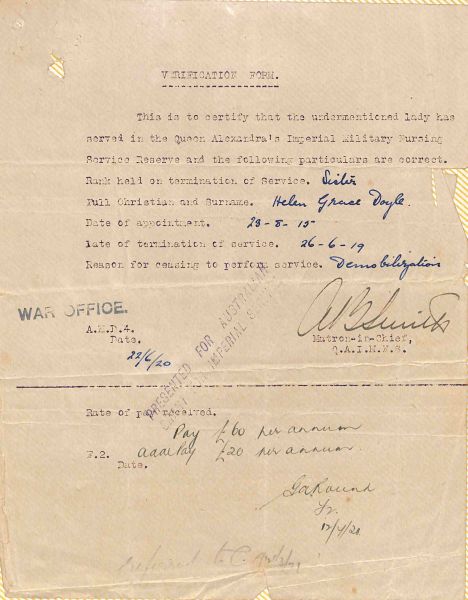 VERIFICATION FORM.
This is to certify that the undermentioned lady has
served in the Queen Alexandra's Imperial Military Nursing
Service Reserve and the following particulars are correct.
Rank held on termination of Service. Sister
Full Christian and Surname. Helen Grace Doyle.
Date of appointment. 23-8-15
Date of termination of service. 26-6-19
Reason for ceasing to perform service. Demobilization
WAR OFFICE.
PRESENTED FOR AUSTRALIAN
IMPERIAL
A.M.D.4.
Date.
22/6/20
Matron-in-Chief,
Q.A.I.M.N.S.
Rate of pay received.
Pay £60 per annum
F.2. Pay £20 per annum.
Date.